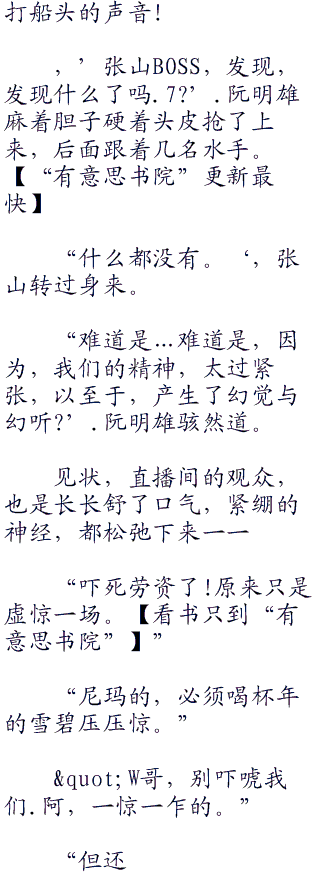 打船头的声音!
，’张山BOSS，发现，
发现什么了吗.7?’.阮明雄
麻着胆子硬着头皮抢了上
来，后面跟着几名水手。
【“有意思书院”更新最
快】
“什么都没有。‘，张
山转过身来。
“难道是…难道是，因
为，我们的精神，太过紧
张，以至于，产生了幻觉与
幻听?’.阮明雄骇然道。
见状，直播间的观众，
也是长长舒了口气，紧绷的
神经，都松弛下来一一
“吓死劳资了!原来只是
虚惊一场。【看书只到“有
意思书院”】”
“尼玛的，必须喝杯年
的雪碧压压惊。”
&quot;W哥，别吓唬我
们.阿，一惊一乍的。”
“但还